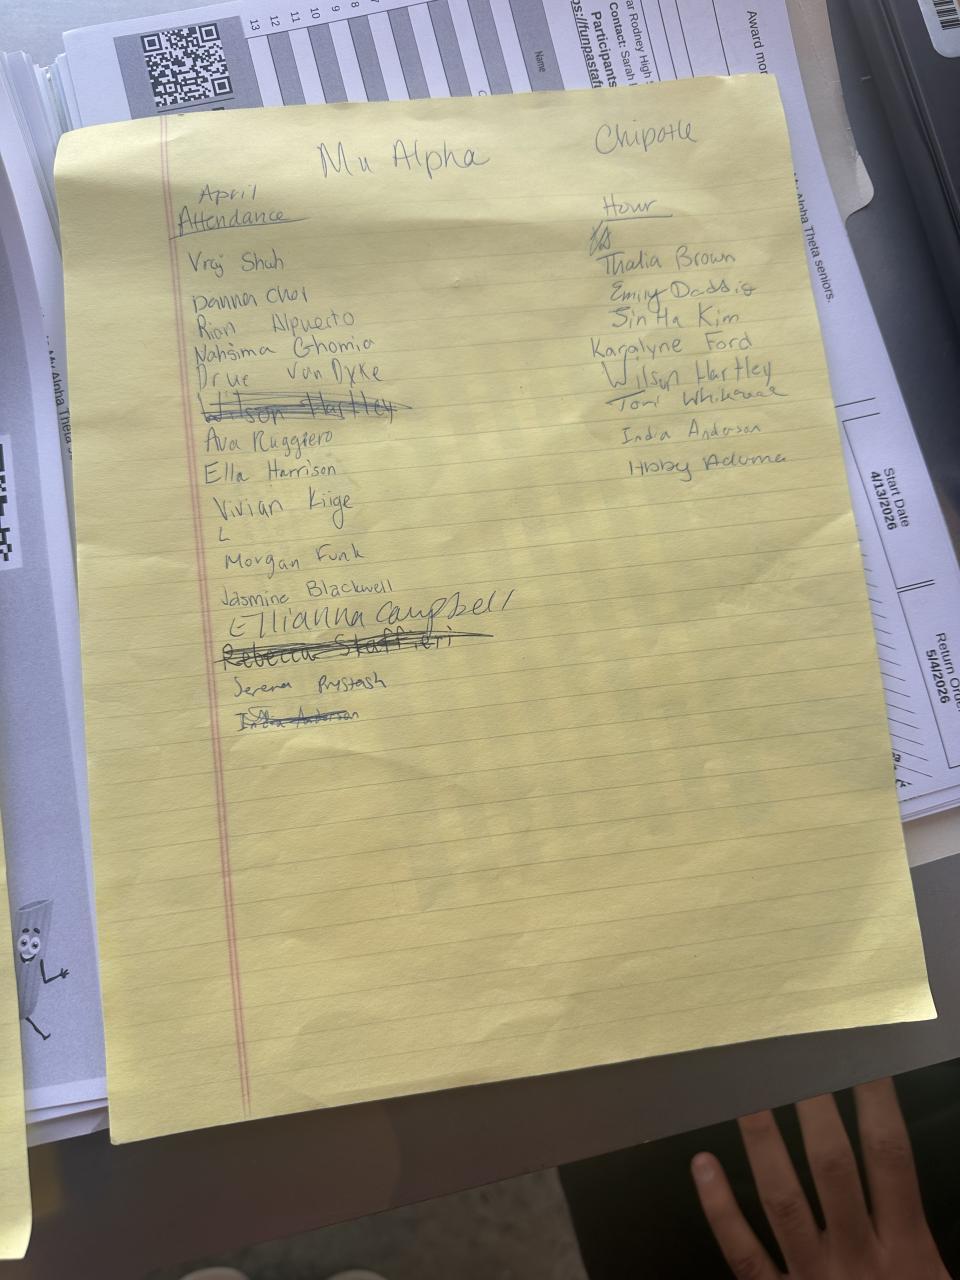 13
12
11
10
9
8
7
Name
ar Rodney High S
Contact: Sarah
Participants
ps://funpastaf
Award mor
Mu Alpha
Chipotle
April
Attendance
Vraj Shah
Danna Choi
Rian Alpuerto
Nahsima Ghomia
Drue Van Dyke
Wilson Hartley
Ava Ruggiero
Ella Harrison
Vivian Kiige
L
Morgan Funk
Jasmine Blackwell
Ellianna Campbell
Rebecca Staffieri
Serena Prystash
India Anderson
Hour
Thalia Brown
Emily
Sin Ha Kim
Karalyne Ford
Wilson Hartley
Toni
India Anderson
Aduma
Alpha Theta seniors.
Mu Alpha Theta s
Start Date
4/13/2026
Return Orde
5/4/2026